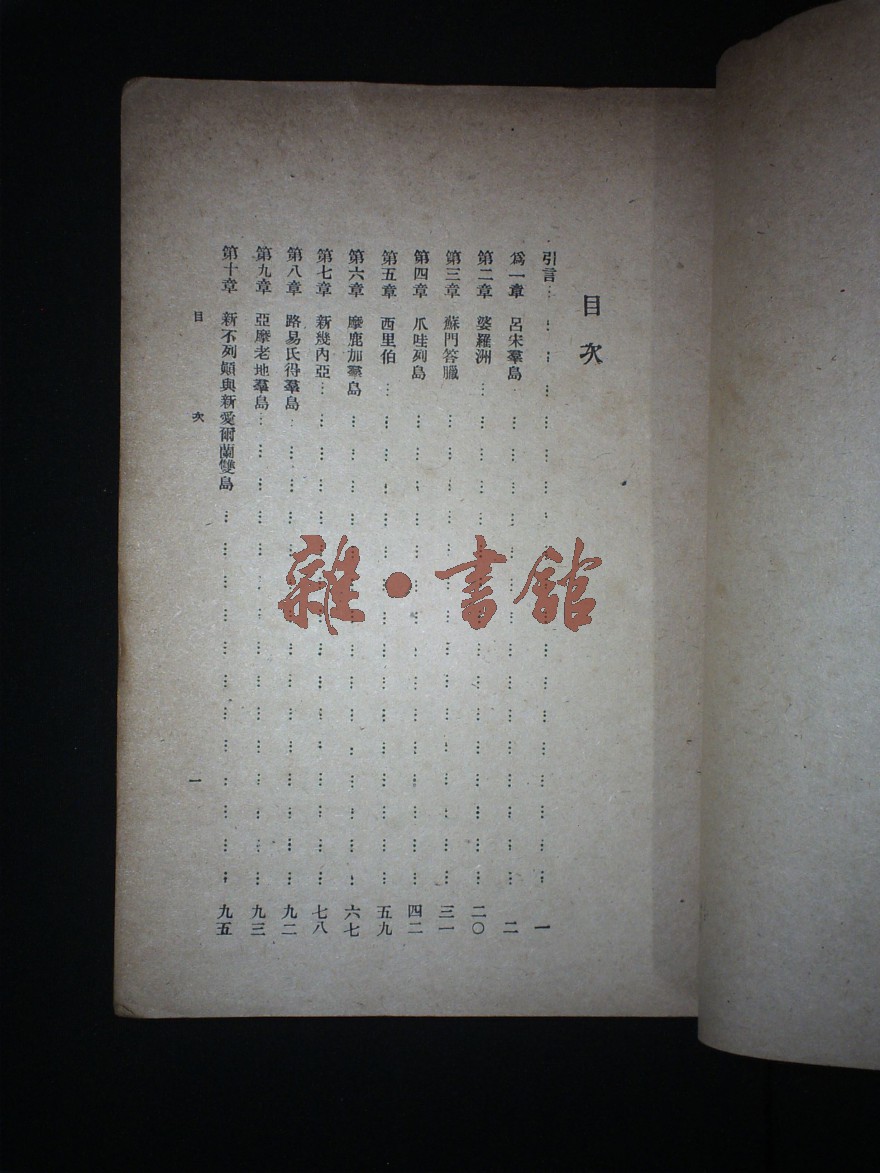 目次
引言……一
爲一章 呂宋羣島……二
第二章 婆羅洲……二〇
第三章 蘇門答臘……三一
第四章 爪哇列島……四二
第五章 西里伯……五九
第六章 摩鹿加羣島……六七
第七章 新幾內亞……七八
第八章 路易氏得羣島……九二
第九章 亞摩老地羣島……九三
第十章 新不列顛與新愛爾蘭雙島……九五
目次 一
雜·書館